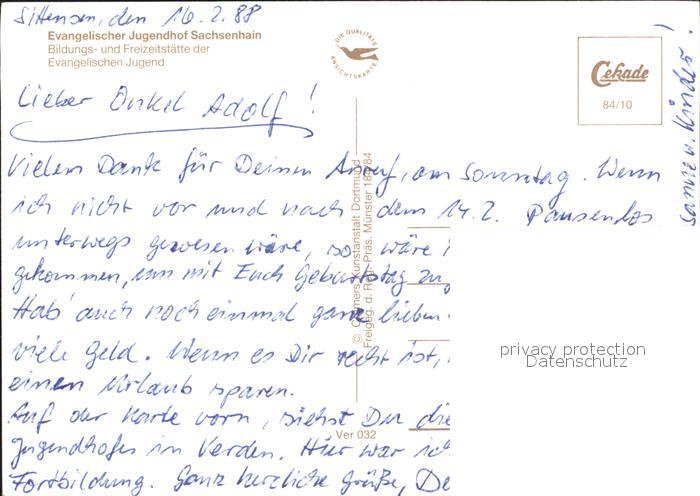 Sittensen, den 16.2.88
Evangelischer Jugendhof Sachsenhain
Bildungs- und Freizeitstätte der
Evangelischen Jugend
DIE QUALITÄTS
ANSICHTSKARTE
Cekade
84/10
Lieber Onkel Adolf!
Vielen Dank für Deinen Anruf, am Sonntag. Wenn
ich nicht vor und nach dem 14.2. Pausenlos
unterwegs gewesen wäre, so wäre i
gekommen, um mit Euch Geburtstag zu
Hab' auch noch einmal ganz lieben
viele Geld. Wenn es Dir recht ist,
einen Urlaub sparen.
Auf der Karte vorn, siehst Du die
Jugendhofes in Verden. Hier war ich
Fortbildung. Ganz herzliche Grüße, De
u. Kinder!
© Cramers Kunstanstalt Dortmund
Freigeg. d. Reg.-Präs. Münster
Ver 032
privacy protection
Datenschutz